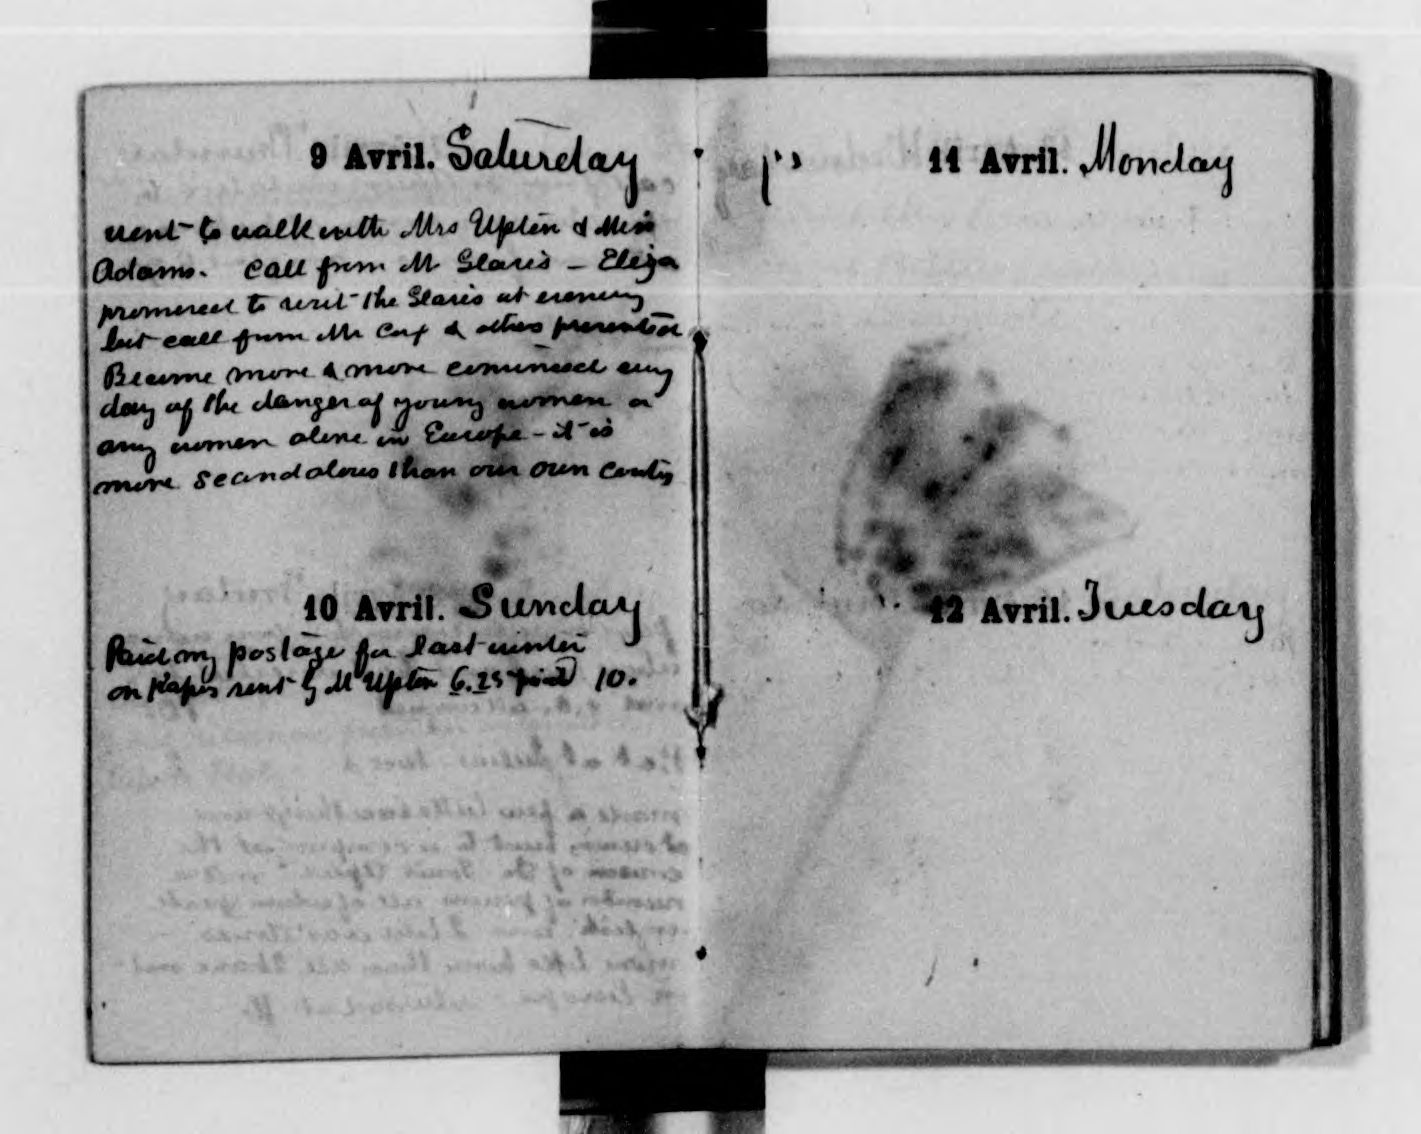 9 Avril. Saturday
went to walk with Mrs Upton & Miss
Adams. Call from M Glaris – Eliza
promised to visit the Glaris at evening
but call from Mr & others prevented
Become more & more convinced every
day of the danger of young women or
any women alone in Europe – it is
more scandalous than our own
10 Avril. Sunday
Paid my postage for last winter
on sent by M Upton 6.25 10.
11 Avril. Monday
12 Avril. Tuesday